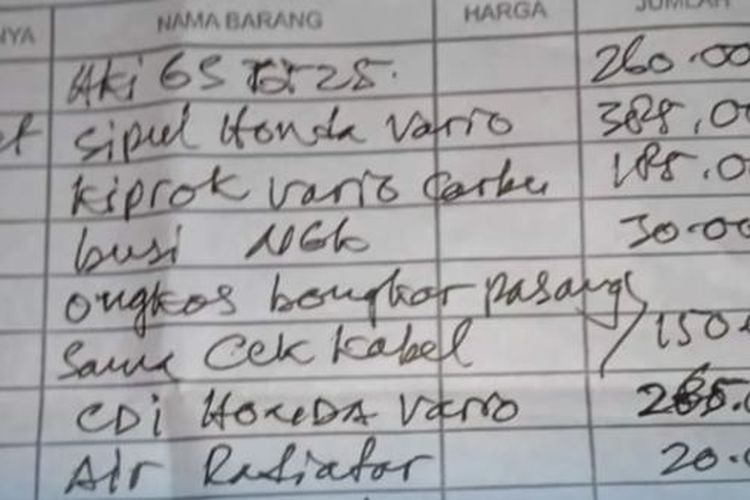 NYA NAMA BARANG HARGA JUMLAH
Aki GS 260.00
sipul Honda Vario 385,0
kiprok vario Carbu 185.0
busi NGK 30.00
ongkos bongkar pasang
Sama Cek kabel 150.
CDi HONDA Vario 265.
Air Radiator 20.